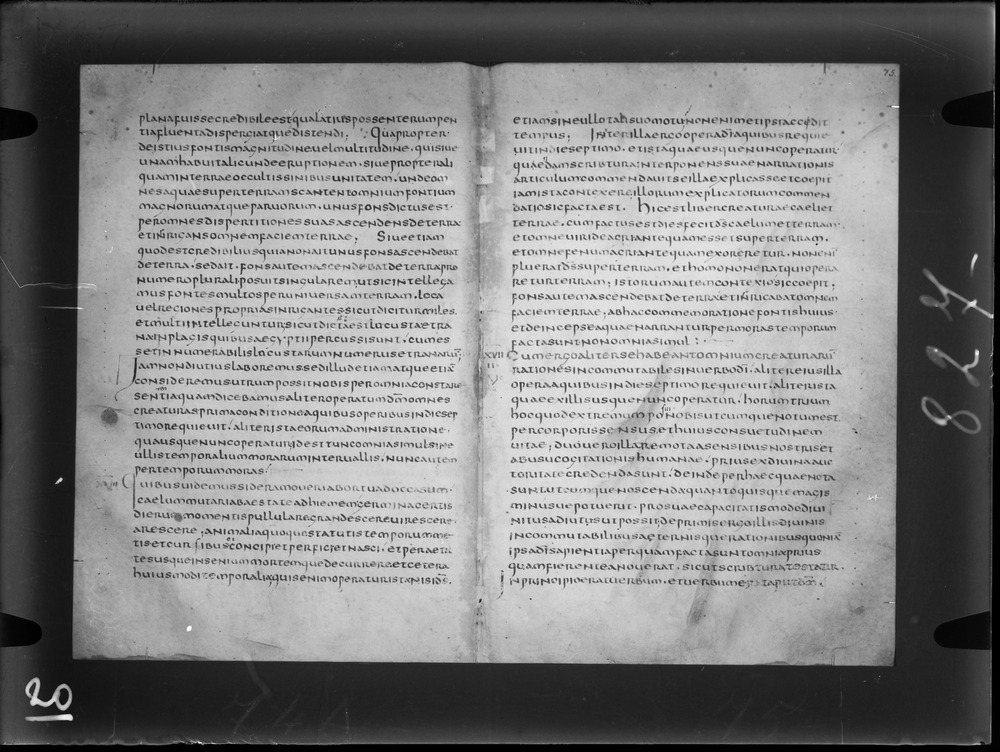 planafuissecredibileestqualatiuspossenterumpen
tiafluentadispergiatquedistendi; Quapropter
deistiusfontismagnitudineuelmultitudine. quisiue
unamhabuitalicundeeruptionem. siuepropterali
quaminterraeoccultissinibusunitatem. undeom
nesaquaesuperterramscatentomniumfontium
magnorumatqueparuorum. unusfonsdictusest.
peromnesdispertitionessuasascendensdeterra
etinricansomnemfaciemterrae. Siueetiam
quodestcredibiliusquianonaitunusfonsascendebat
deterra. sedait. fonsautemascendebatdeterrapro
numeropluraliposuitsingularemutsicintellega
musfontesmultosperuniversamterram. loca
uelregionespropriasinricantessicutdiciturmiles.
etmultiintelleguntursicutdictaestlucustaetra
nainplagisquibusaegyptiipercussisunt. cumes
setinnumerabilislucustarumnumerusetranarum
Iamnondiutiuslaboremussedilludetiamatqueetia
consideremusutrumpossitnobisperomniaconstare
sentiaquamdicebamusaliteroperatumdmomnes
creaturasprimaconditioneaquibusoperibusindiesep
timorequieuit. aliteristaeorumadministratione.
quausquenuncoperaturidesttuncomniasimulsine
ullistemporaliummoraruminteruallis. nuncautem
pertemporummoras
Quibusuidemussideramoueriabortuadoccasum.
caelummutariabaestateadhiememgerminacertis
dierummomentispullularegrandescereuirescere.
arescere. animaliaquoquestatutistemporumme
tisetcursibusconcipietperficietnasci. etperaeta
tesusqueinseniummortemquedecurrereetcetera
huiusmoditemporaliaquisenimoperaturistanisids.
75
etiamsineullotalisuomotunonenimetipsiaccidit
tempus. Interillaergooperadiaquibusrequie
uitindieseptimo. etistaquaeusquenuncoperatur
quaedamscribturainterponenssuaenarrationis
articulumcommendauitseillaexplicasseetcoepit
iamistacontexereillorumexplicatorumcommen
datiosicfactaest. Hicestlibercreaturaecaeliet
terrae. cumfactusestdiesfecitdscaelumetterram.
etomneuirideagriantequamessetsuperterram.
etomnefenumagriantequamexoreretur. nonenim
plueratdssuperterram. ethomononeratquiopera
returterram; istorumautemcontextiosiccoepit.
fonsautemascendebatdeterraetinricabatomnem
faciemterrae. abhaccommemorationefontishuius.
etdeincepseaquaenarranturpermorastemporum
factasuntnonomniasimul:
XVII Cumergoalitersehabeantomniumcreaturarum
rationesincommutabilesinuerbodi. alitereiusilla
operaaquibusindieseptimorequieuit. aliterista
quaeexillisusquenuncoperatur. horumtrium
hocquodextremumposuinobisutcumquenotumest.
percorporissensusethuiusconsuetudinem
uitae. duoueroillaremotaasensibusnostriset
abusucogitationishumanae. priusexdiuinaauc
toritatecredendasunt. deindeperhaecquaenota
suntutcumquenoscendaquantoquisquemagis
minusuepotuerit. prosuaecapacitatismododiui
nitusadiutusutpossit. deprimisergoillisdiuinis
incommutabilibusaeternisquerationibusquonia
ipsadisapientiaperquamfactasuntomniaprius
quamfierenteanouerat. sicutscribturatestatur.
Inprincipioeratuerbum. etuerbumeratapuddm.
827
120